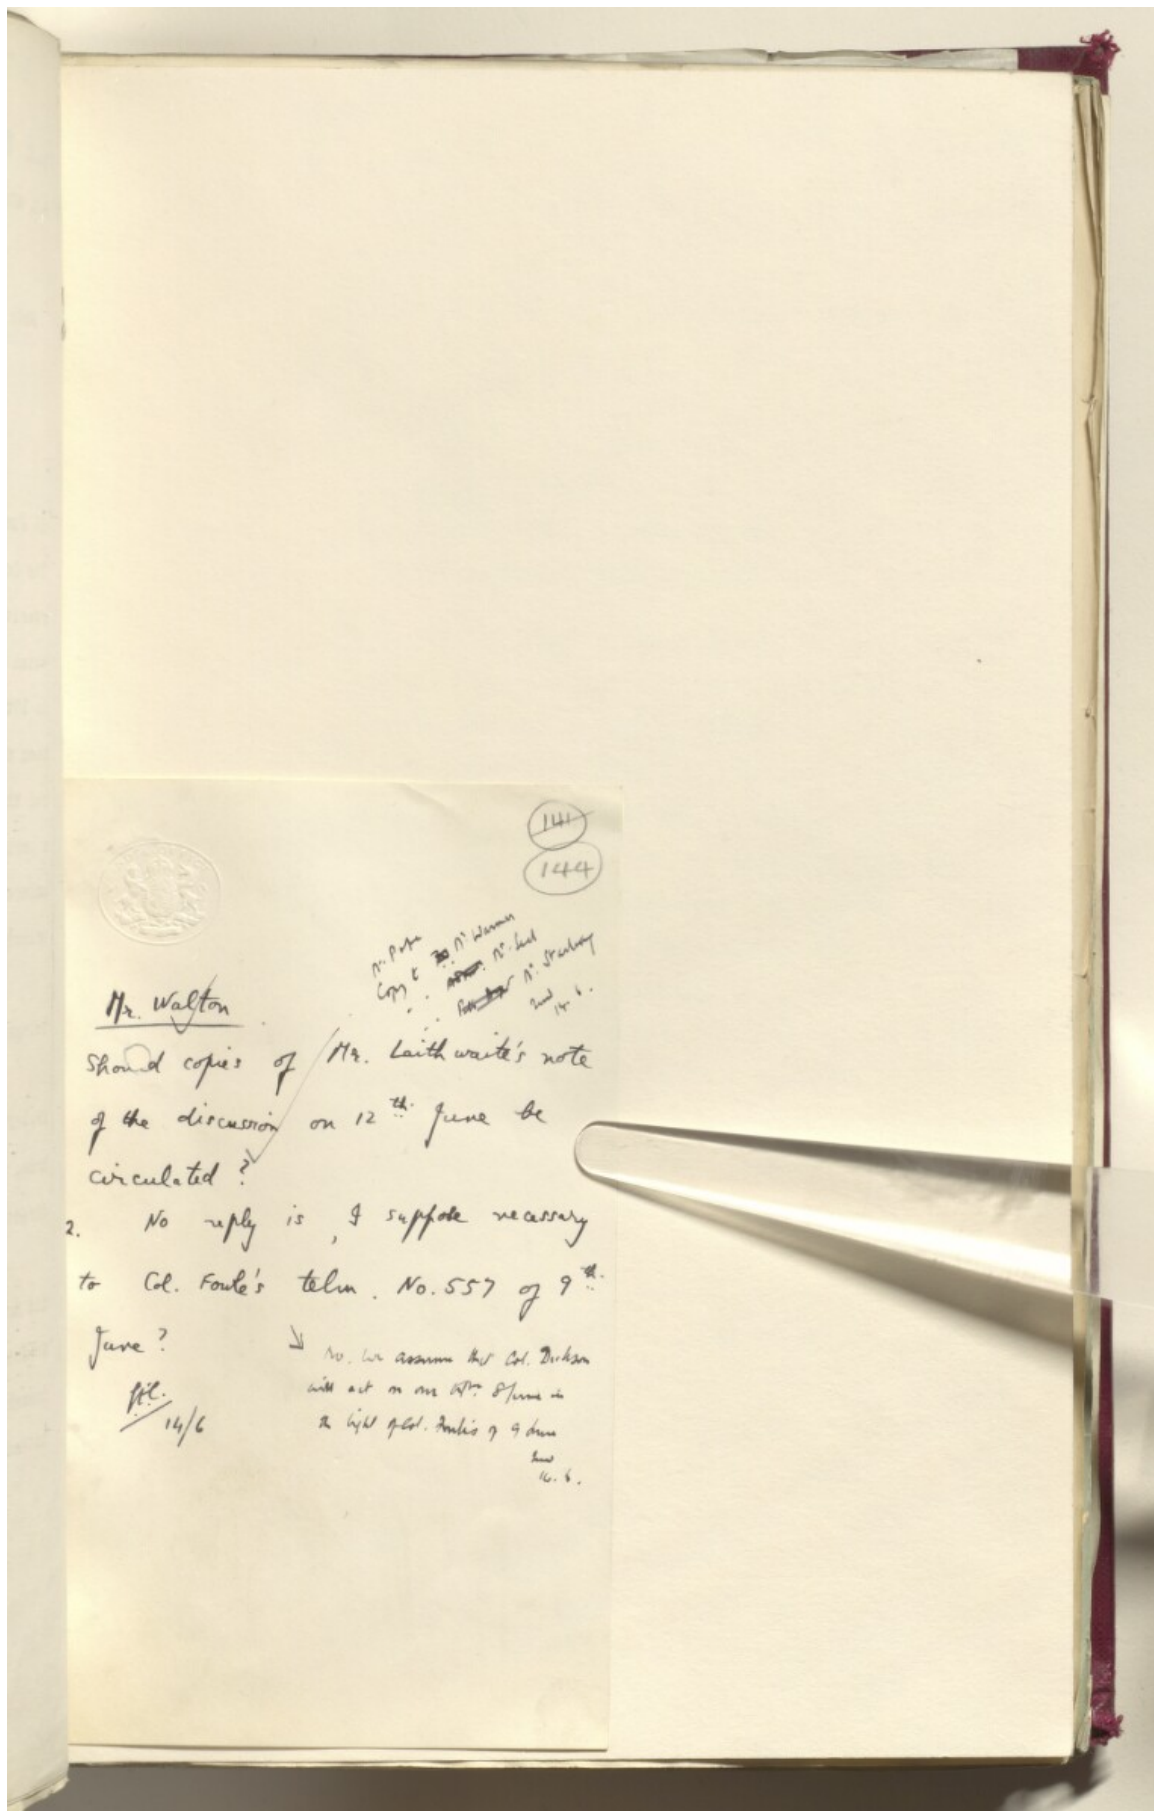 141
144
Copy to Mr. Warner
Mr.
Mr. Starling
14. 6.
Mr. Walton
Should copies of Mr. Laithwaite's note
of the discussion on 12th June be
circulated?
2. No reply is, I suppose necessary
to Col. Fowle's telm. No. 557 of 9th
June?
14/6
No. We assume that Col. Dickson
will act on our 8 June in
the light of Col. Fowle's of 9 June
6.